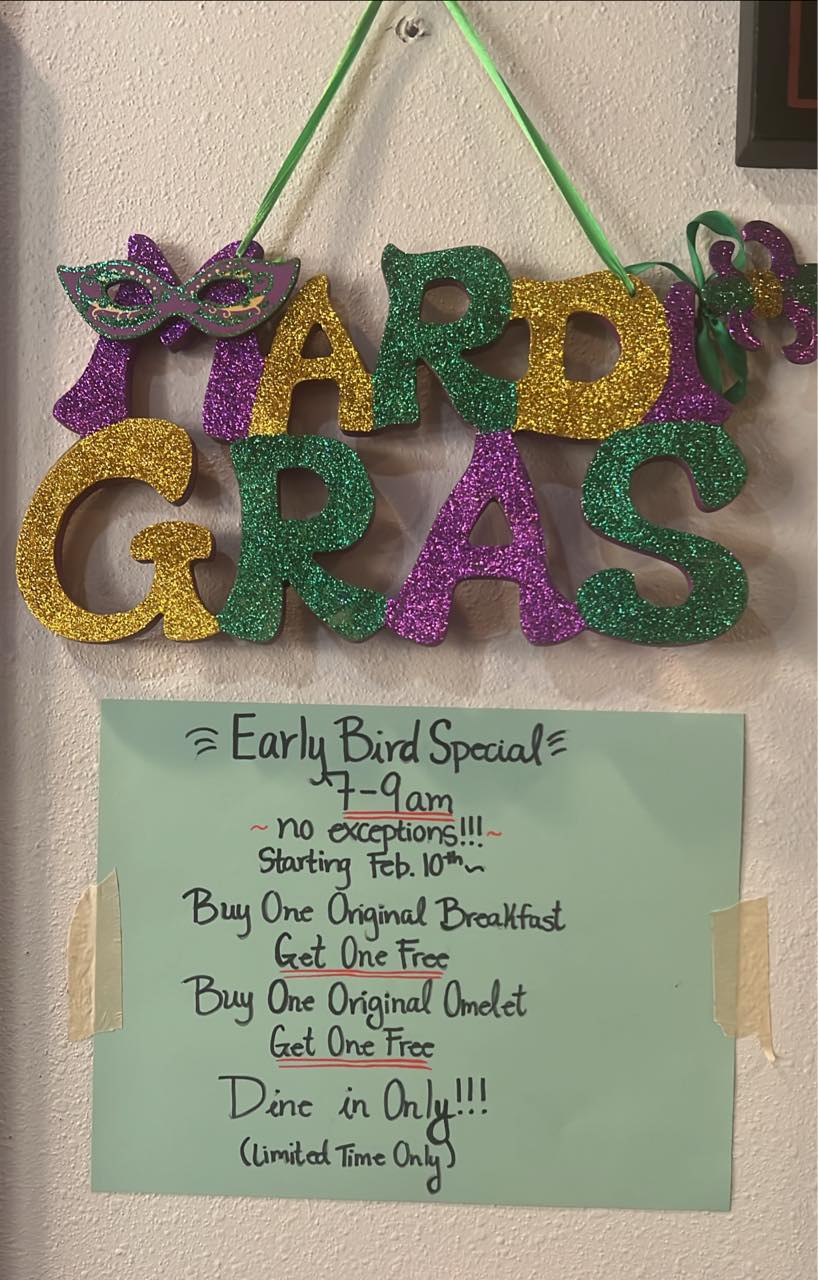 MARDI
GRAS
Early Bird Special
7-9am
~ no exceptions!!! ~
Starting Feb. 10th ~
Buy One Original Breakfast
Get One Free
Buy One Original Omelet
Get One Free
Dine in Only!!!
(Limited Time Only)